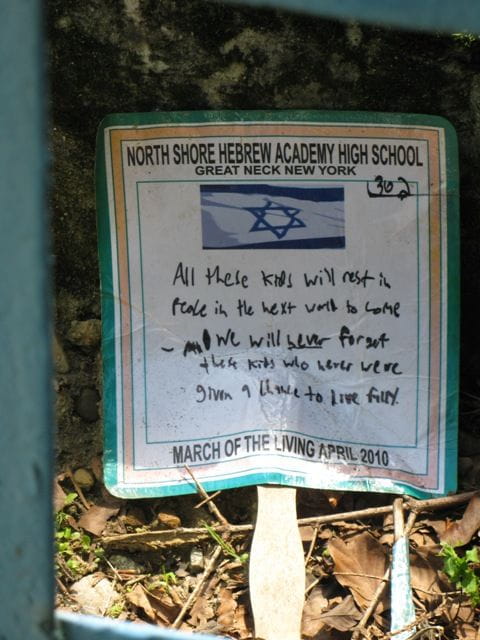 NORTH SHORE HEBREW ACADEMY HIGH SCHOOL
GREAT NECK NEW YORK
362
All these kids will rest in
Peace in the next world to come
- And We will never forget
these kids who never were
given a chance to live fully.
MARCH OF THE LIVING APRIL 2010